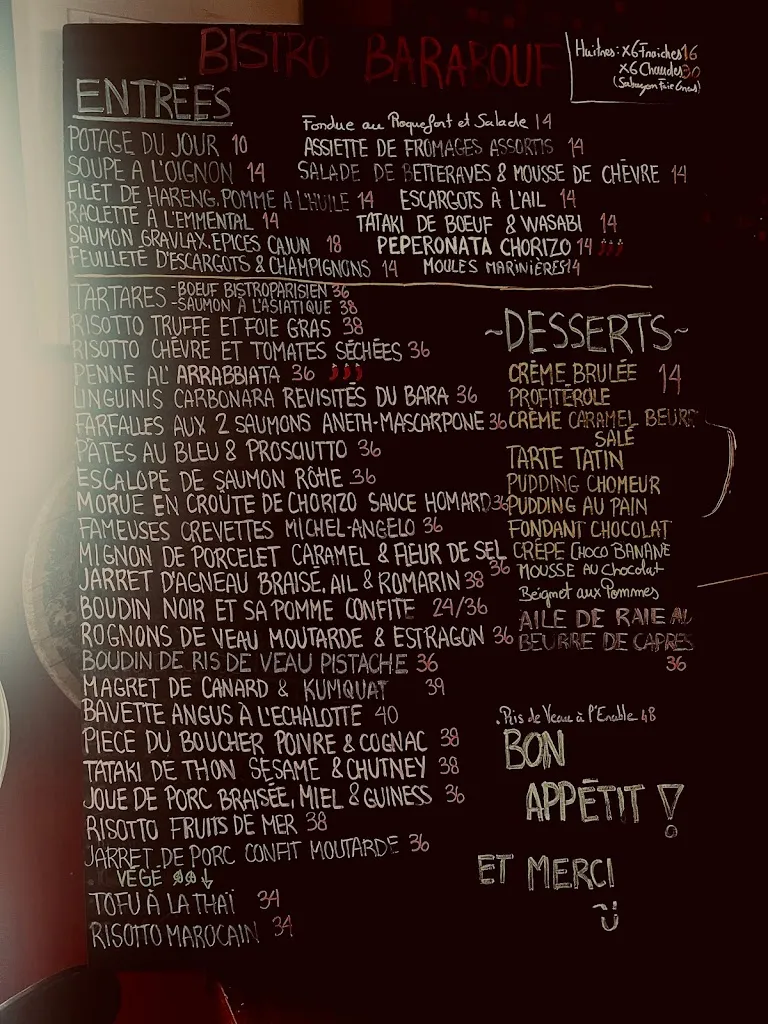 BISTRO BARABOUF
Huitres: x6 Fraiches 16
x6 Chaudes 30
(Sabayon Foie Gras)
ENTRÉES
POTAGE DU JOUR 10
SOUPE A L'OIGNON 14
FILET DE HARENG, POMME A L'HUILE 14
RACLETTE A L'EMMENTAL 14
SAUMON GRAVLAX, EPICES CAJUN 18
FEUILLETÉ D'ESCARGOTS & CHAMPIGNONS 14
Fondue au Roquefort et Salade 14
ASSIETTE DE FROMAGES ASSORTIS 14
SALADE DE BETTERAVES & MOUSSE DE CHÈVRE 14
ESCARGOTS À L'AIL 14
TATAKI DE BOEUF & WASABI 14
PEPERONATA CHORIZO 14
MOULES MARINIÈRES 14
TARTARES - BOEUF BISTROPARISIEN 36
- SAUMON À L'ASIATIQUE 38
RISOTTO TRUFFE ET FOIE GRAS 38
RISOTTO CHÈVRE ET TOMATES SÉCHÉES 36
PENNE AL' ARRABBIATA 36
LINGUINIS CARBONARA REVISITÉS DU BARA 36
FARFALLES AUX 2 SAUMONS ANETH-MASCARPONE 36
PÂTES AU BLEU & PROSCIUTTO 36
ESCALOPE DE SAUMON RÔHE 36
MORUE EN CROÛTE DE CHORIZO SAUCE HOMARD 36
FAMEUSES CREVETTES MICHEL-ANGELO 36
MIGNON DE PORCELET CARAMEL & FLEUR DE SEL 36
JARRET D'AGNEAU BRAISÉ, AIL & ROMARIN 38
BOUDIN NOIR ET SA POMME CONFITE 24/36
ROGNONS DE VEAU MOUTARDE & ESTRAGON 36
BOUDIN DE RIS DE VEAU PISTACHE 36
MAGRET DE CANARD & KUMQUAT 39
BAVETTE ANGUS À L'ECHALOTTE 40
PIECE DU BOUCHER POIVRE & COGNAC 38
TATAKI DE THON SESAME & CHUTNEY 38
JOUE DE PORC BRAISÉE, MIEL & GUINESS 36
RISOTTO FRUITS DE MER 38
JARRET DE PORC CONFIT MOUTARDE 36
VÉGÉ ↓
TOFU À LA THAÏ 34
RISOTTO MAROCAIN 34
~DESSERTS~
CRÈME BRULÉE 14
PROFITÉROLE
CRÈME CARAMEL BEURRE
SALÉ
TARTE TATIN
PUDDING CHOMEUR
PUDDING AU PAIN
FONDANT CHOCOLAT
CRÊPE CHOCO BANANE
MOUSSE AU Chocolat
Beignet aux Pommes
AILE DE RAIE AU
BEURRE DE CAPRES
36
. Ris de Veau à l'Erable 48
BON
APPÉTIT !
ET MERCI